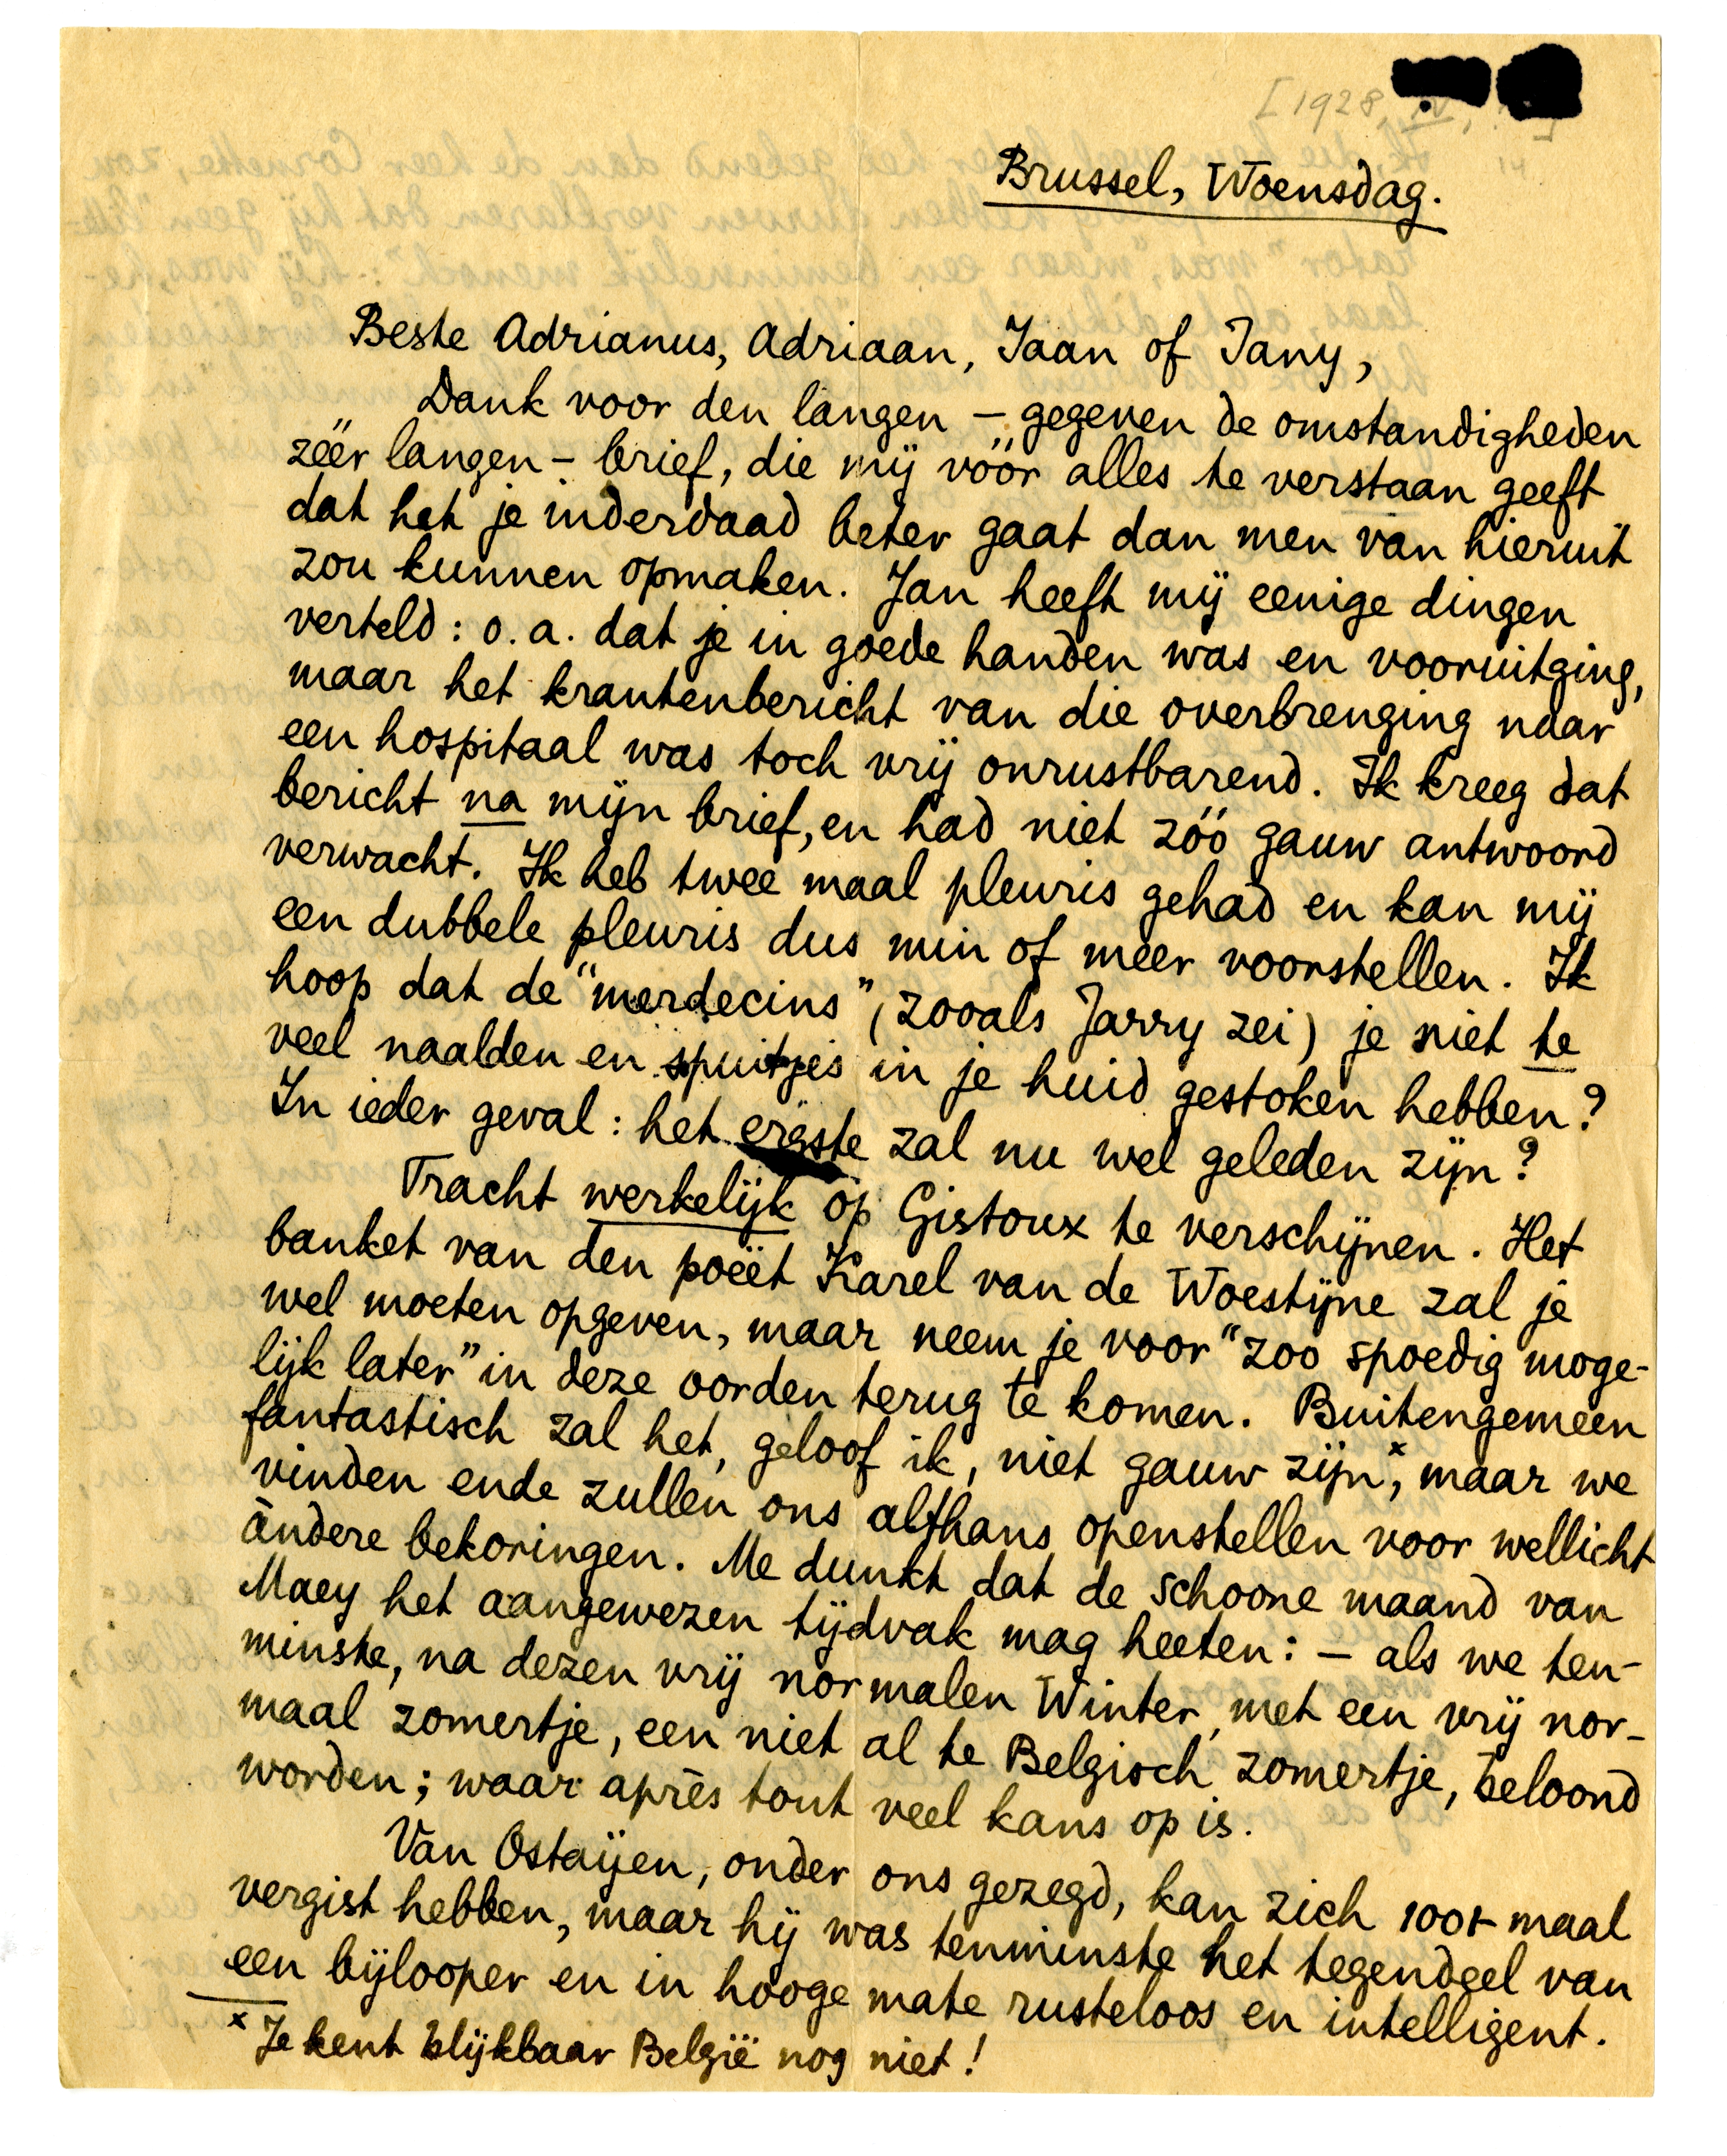 [1928, IV,
14
Brussel, Woensdag.
Beste Adrianus, Adriaan, Jaan of Jany,
Dank voor den langen – gegeven de omstandigheden
zéér langen – brief, die mij vóór alles te verstaan geeft
dat het je inderdaad beter gaat dan men van hieruit
zou kunnen opmaken. Jan heeft mij eenige dingen
verteld: o.a. dat je in goede handen was en vooruitging,
maar het krantenbericht van die overbrenging naar
een hospitaal was toch vrij onrustbarend. Ik kreeg dat
bericht na mijn brief, en had niet zóó gauw antwoord
verwacht. Ik heb twee maal pleuris gehad en kan mij
een dubbele pleuris dus min of meer voorstellen. Ik
hoop dat de "merdecins" (zooals Jarry zei) je niet te
veel naalden en spuitjes in je huid gestoken hebben?
In ieder geval: het ergste zal nu wel geleden zijn?
Tracht werkelijk op Gistoux te verschijnen. Het
banket van den poëet Karel van de Woestijne zal je
wel moeten opgeven, maar neem je voor "zoo spoedig moge-
lijk later" in deze oorden terug te komen. Buitengemeen
fantastisch zal het, geloof ik, niet gauw zijn x, maar we
vinden ende zullen ons althans openstellen voor wellicht
àndere bekoringen. Me dunkt dat de schoone maand van
Maey het aangewezen tijdvak mag heeten: – als we ten-
minste, na dezen vrij normalen Winter, met een vrij nor-
maal zomertje, een niet al te Belgisch zomertje, beloond
worden; waar après tout veel kans op is.
Van Ostaijen, onder ons gezegd, kan zich 100+ maal
vergist hebben, maar hij was tenminste het tegendeel van
een bijlooper en in hooge mate rusteloos en intelligent.
x Je kent blijkbaar België nog niet!